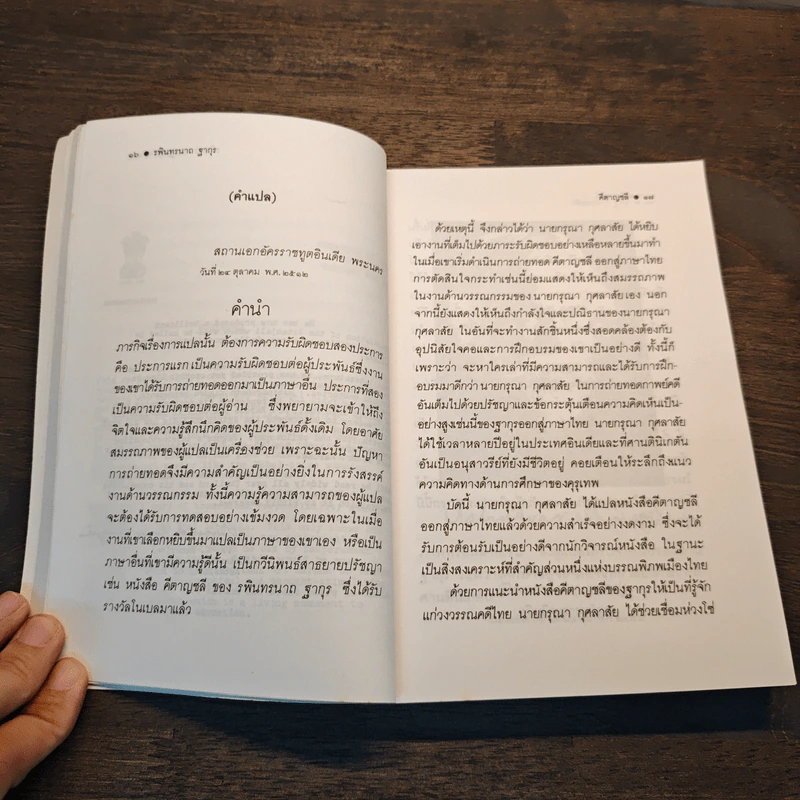 ๑๖ ● รพินทรนาถ ฐากุร
(คำแปล)
สถานเอกอัครราชทูตอินเดีย พระนคร
วันที่ ๒๔ ตุลาคม พ.ศ. ๒๕๑๒
คำนำ
ภารกิจเรื่องการแปลนั้น ต้องการความรับผิดชอบสองประการ
คือ ประการแรก เป็นความรับผิดชอบต่อผู้ประพันธ์ซึ่งงาน
ของเขาได้รับการถ่ายทอดออกมาเป็นภาษาอื่น ประการที่สอง
เป็นความรับผิดชอบต่อผู้อ่าน ซึ่งพยายามจะเข้าให้ถึง
จิตใจและความรู้สึกนึกคิดของผู้ประพันธ์ดั้งเดิม โดยอาศัย
สมรรถภาพของผู้แปลเป็นเครื่องช่วย เพราะฉะนั้น ปัญหา
การถ่ายทอดจึงมีความสำคัญเป็นอย่างยิ่งในการรังสรรค์
งานด้านวรรณกรรม ทั้งนี้ความรู้ความสามารถของผู้แปล
จะต้องได้รับการทดสอบอย่างเข้มงวด โดยเฉพาะในเมื่อ
งานที่เขาเลือกหยิบขึ้นมาแปลเป็นภาษาของเขาเอง หรือเป็น
ภาษาอื่นที่เขามีความรู้ดีนั้น เป็นกวีนิพนธ์สาธยายปรัชญา
เช่น หนังสือ คีตาญชลี ของ รพินทรนาถ ฐากุร ซึ่งได้รับ
รางวัลโนเบลมาแล้ว
คีตาญชลี ● ๑๗
ด้วยเหตุนี้ จึงกล่าวได้ว่า นายกรุณา กุศลาสัย ได้หยิบ
เอางานที่เต็มไปด้วยภาระรับผิดชอบอย่างเหลือหลายขึ้นมาทำ
ในเมื่อเขาเริ่มดำเนินการถ่ายทอด คีตาญชลี ออกสู่ภาษาไทย
การตัดสินใจกระทำเช่นนี้ย่อมแสดงให้เห็นถึงสมรรถภาพ
ในงานด้านวรรณกรรมของ นายกรุณา กุศลาสัย เอง นอก
จากนี้ยังแสดงให้เห็นถึงกำลังใจและปณิธานของนายกรุณา
กุศลาสัย ในอันที่จะทำงานสักชิ้นหนึ่งซึ่งสอดคล้องต้องกับ
อุปนิสัยใจคอและการฝึกอบรมของเขาเป็นอย่างดี ทั้งนี้ก็
เพราะว่า จะหาใครเล่าที่มีความสามารถและได้รับการฝึก-
อบรมมาดีกว่า นายกรุณา กุศลาสัย ในการถ่ายทอดกาพย์คดี
อันเต็มไปด้วยปรัชญาและข้อกระตุ้นเตือนความคิดเห็นเป็น-
อย่างสูงเช่นนี้ของฐากุรออกสู่ภาษาไทย นายกรุณา กุศลาสัย
ได้ใช้เวลาหลายปีอยู่ในประเทศอินเดียและที่ศานตินิเกตัน
อันเป็นอนุสาวรีย์ที่ยังมีชีวิตอยู่ คอยเตือนให้ระลึกถึงแนว
ความคิดทางด้านการศึกษาของคุรุเทพ
บัดนี้ นายกรุณา กุศลาสัย ได้แปลหนังสือคีตาญชลี
ออกสู่ภาษาไทยแล้วด้วยความสำเร็จอย่างงดงาม ซึ่งจะได้
รับการต้อนรับเป็นอย่างดีจากนักวิจารณ์หนังสือ ในฐานะ
เป็นสิ่งสงเคราะห์ที่สำคัญส่วนหนึ่งแห่งบรรณพิภพเมืองไทย
ด้วยการแนะนำหนังสือคีตาญชลีของฐากุรให้เป็นที่รู้จัก
แก่วงวรรณคดีไทย นายกรุณา กุศลาสัย ได้ช่วยเชื่อมห่วงโซ่